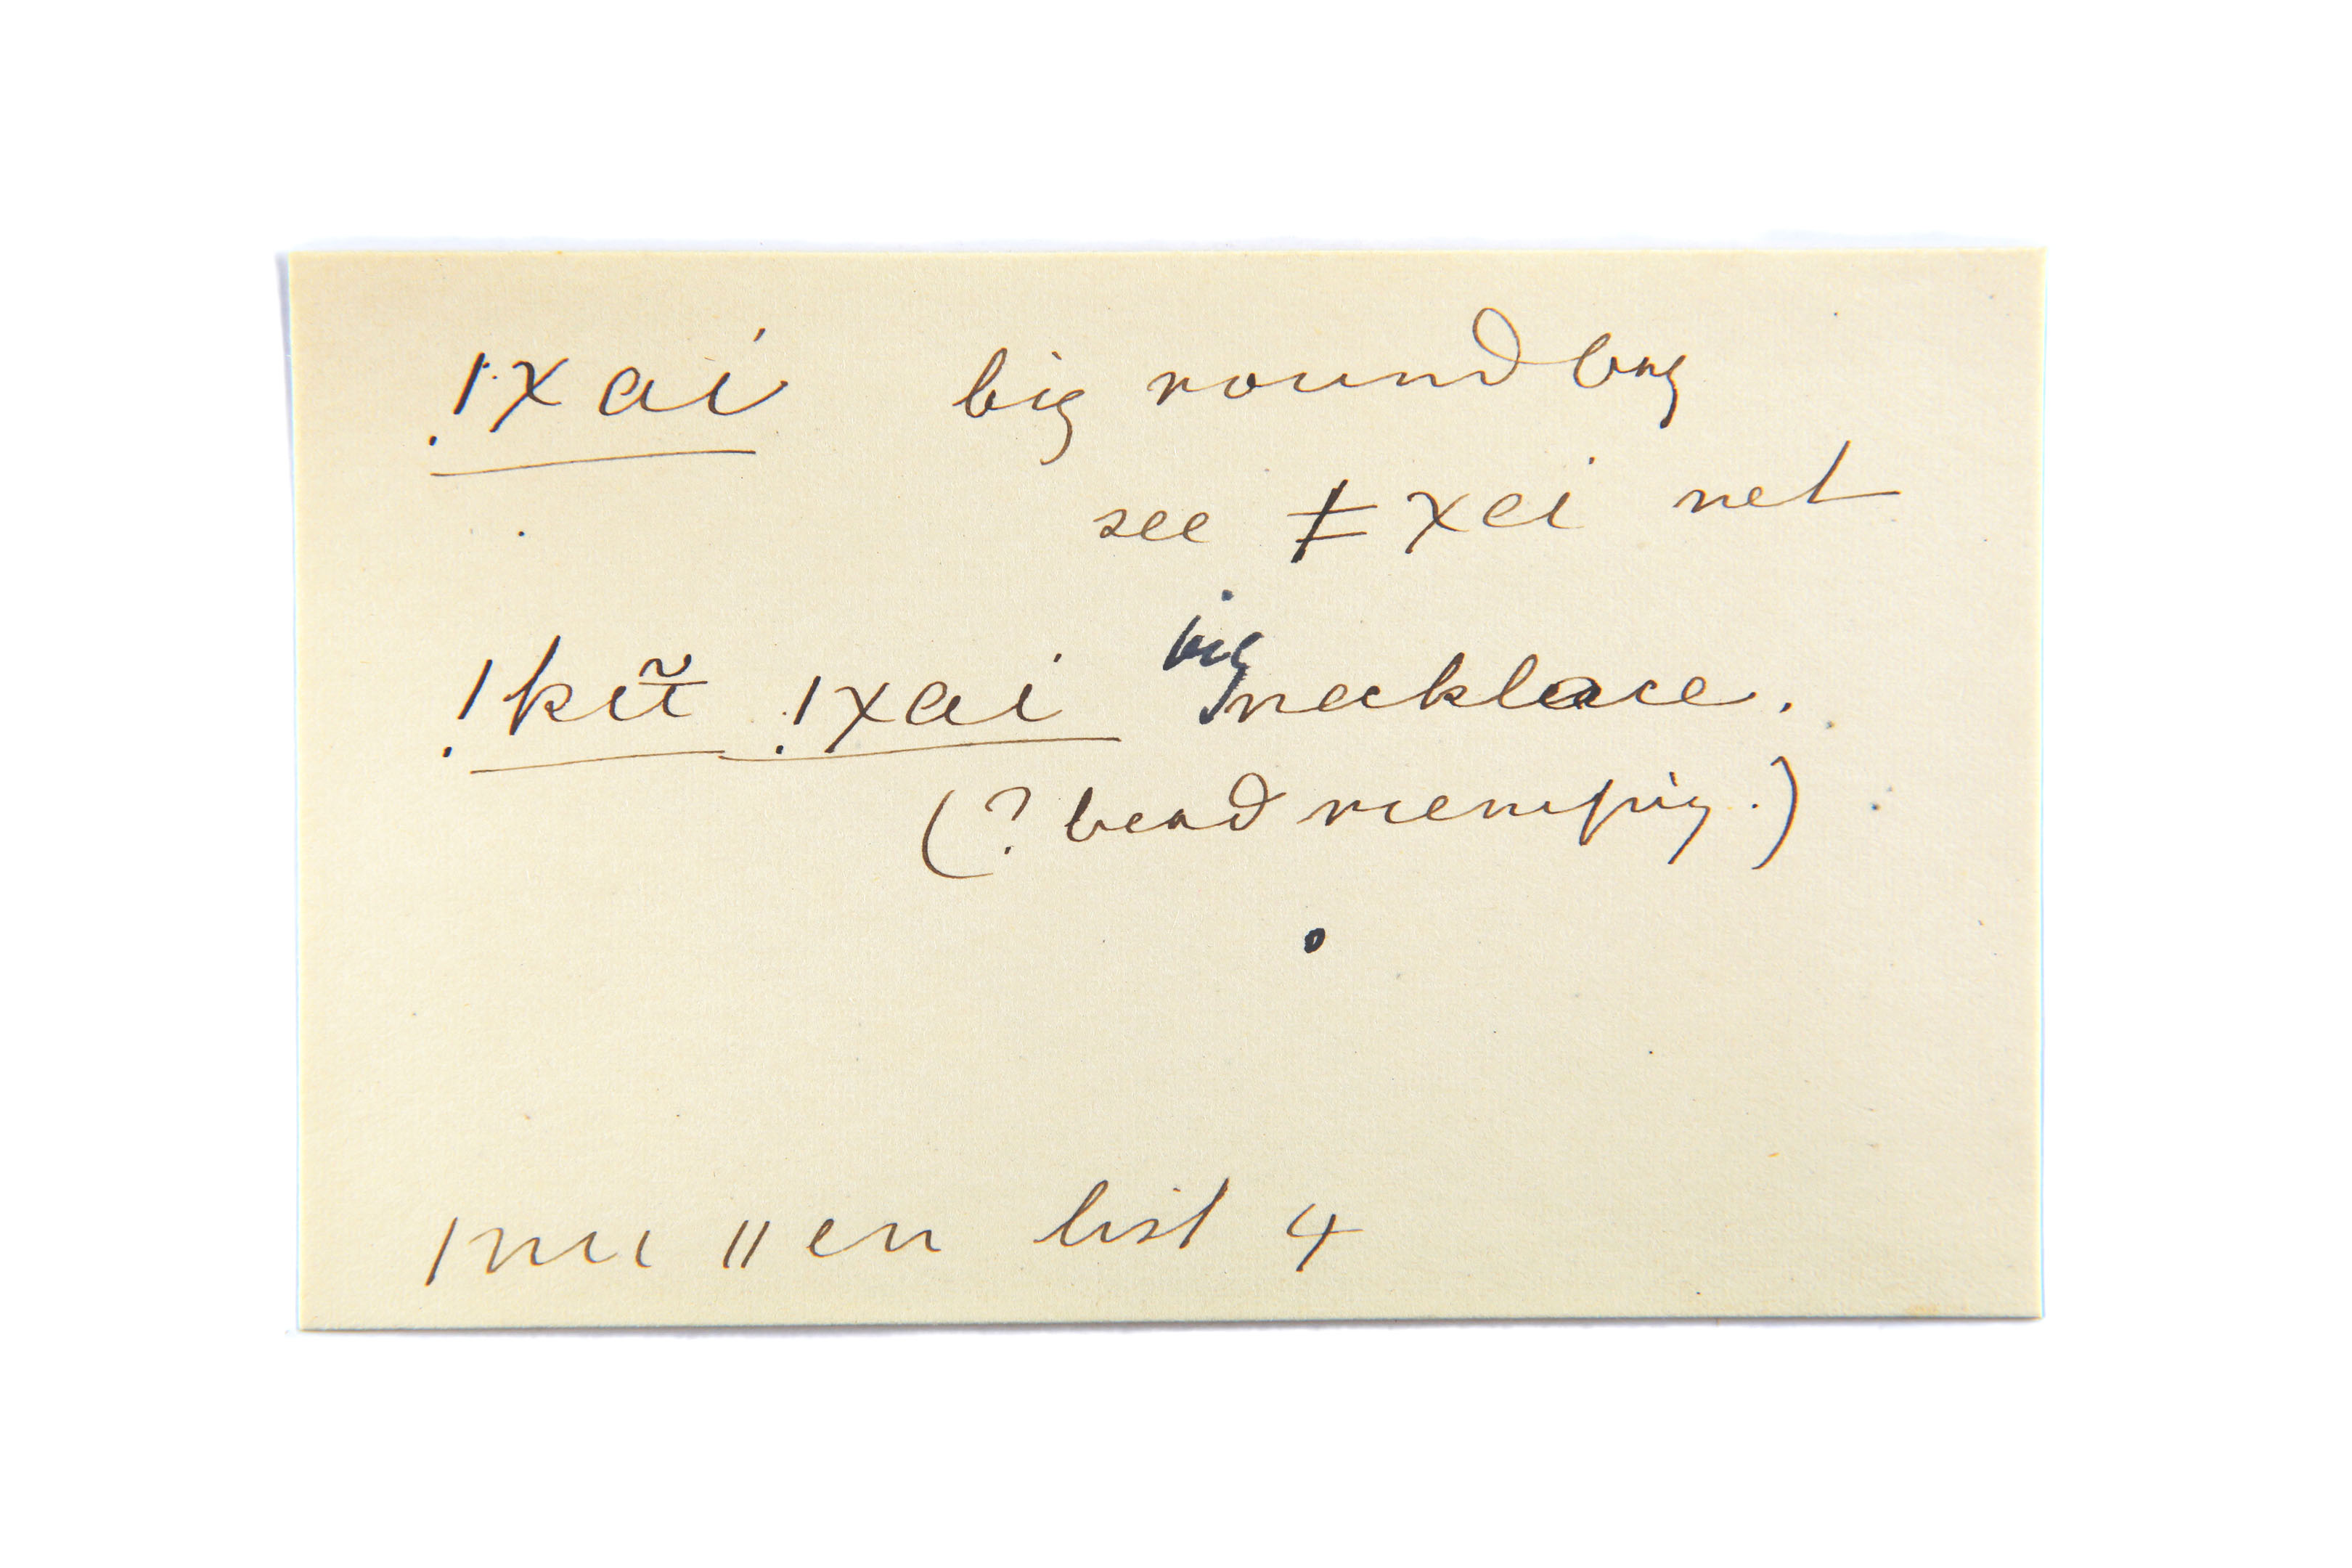 !xai big round bag
see ǂxei net
!kũi !xai big necklace.
(? bead )
|nu ||en list 4